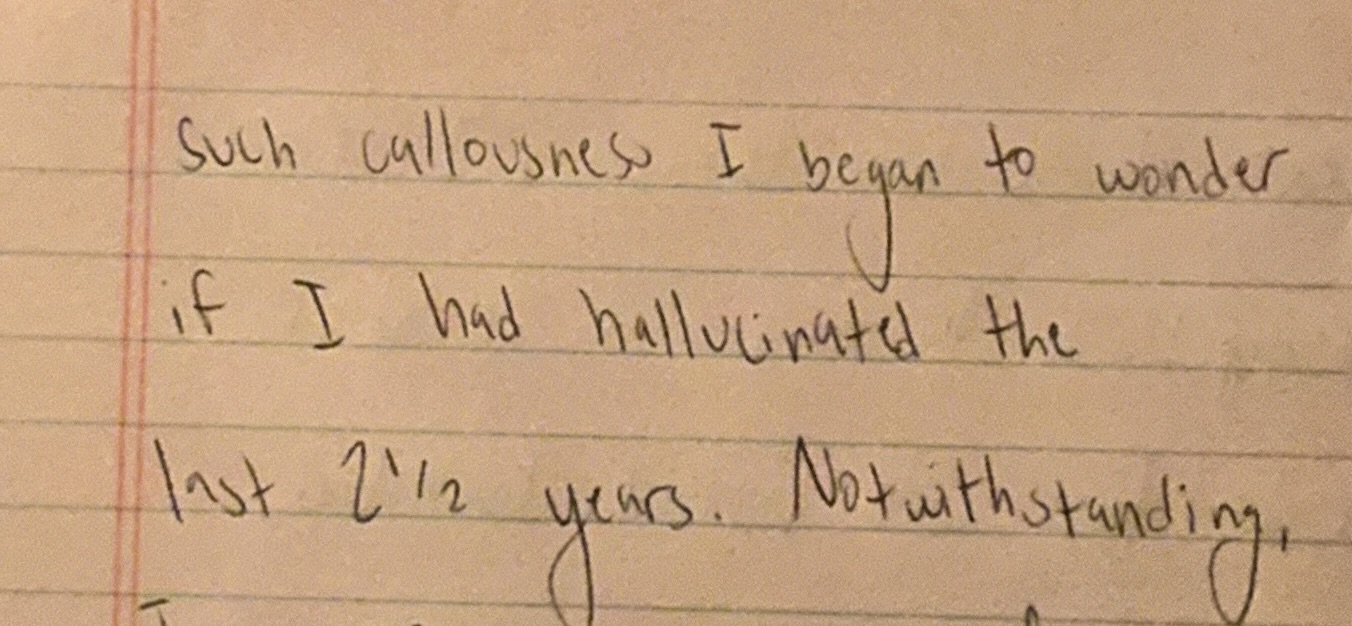 such callousness I began to wonder
if I had hallucinated the
last 2 1/2 years. Notwithstanding,